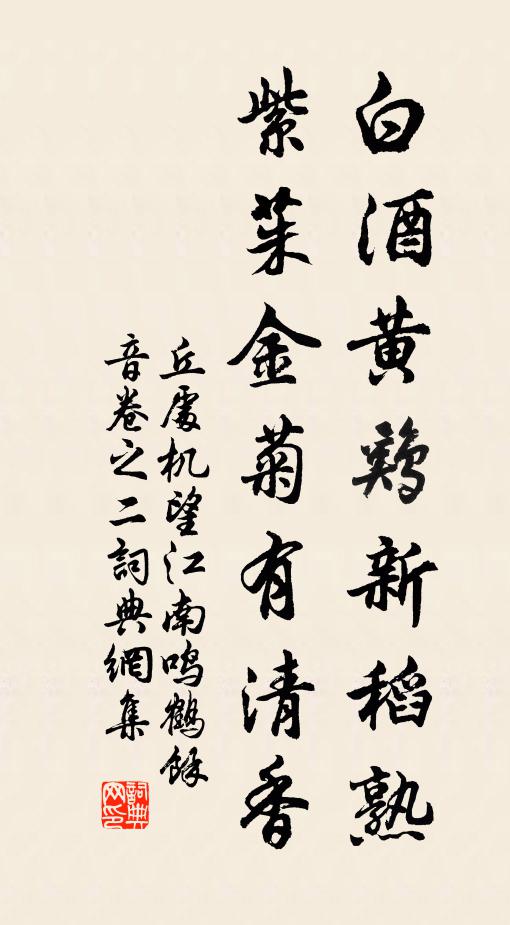 白酒黄鷄新稻熟
紫茱金菊有清香
丘處机望江南鸣鶴餘
音卷之二詞典網集
詞典
网印